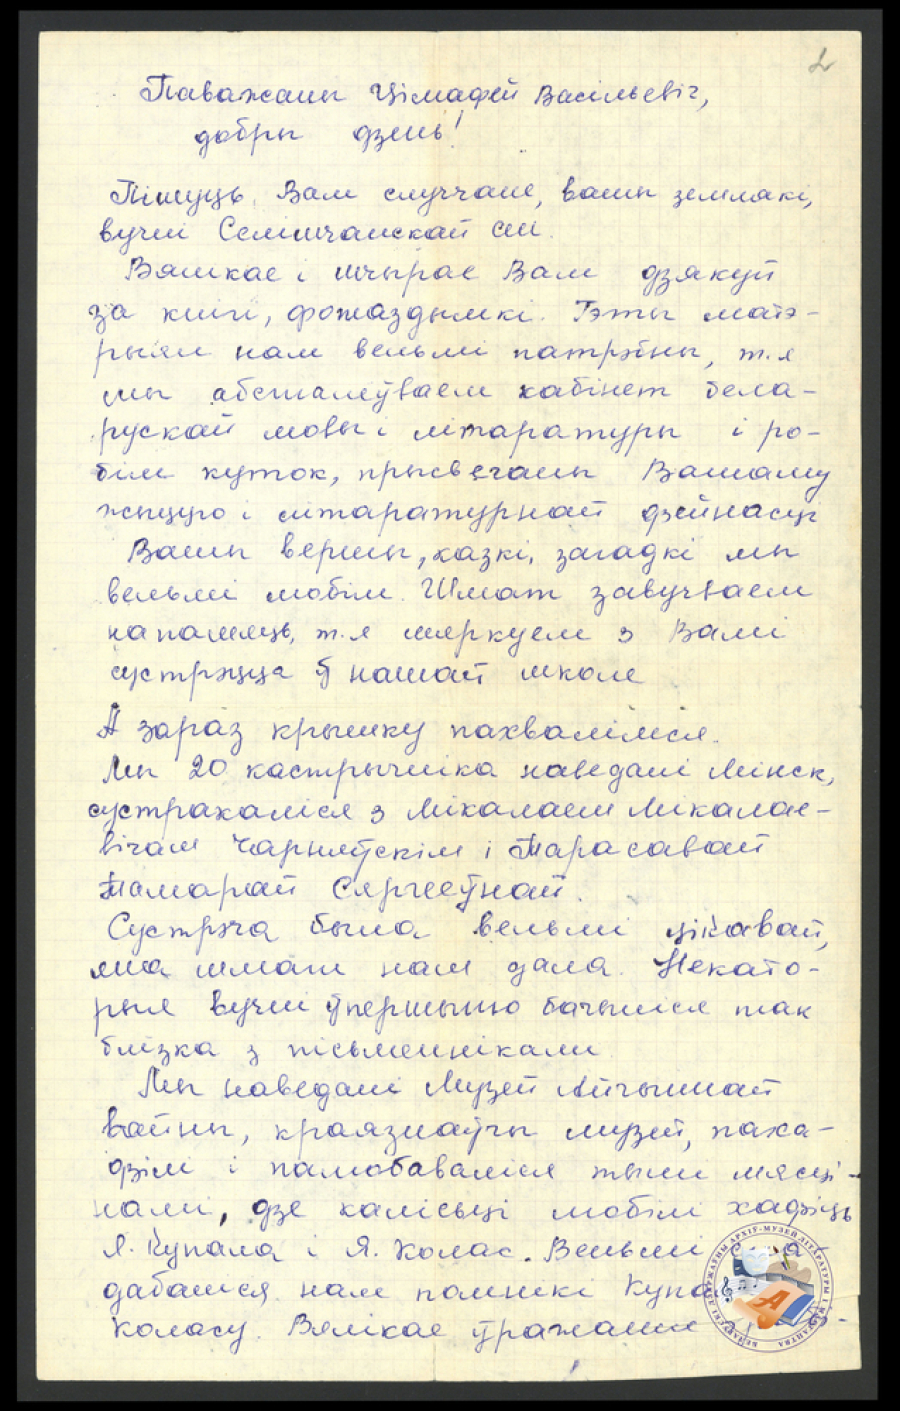 2
Паважаны Цімафей Васільевіч,
добры дзень!
Пішуць Вам случчане, вашы землякі,
вучні Селішчанскай сш.
Вялікае і шчырае Вам дзякуй
за кнігі, фотаздымкі. Гэты матэ-
рыял нам вельмі патрэбны, т.я
мы абсталёўваем кабінет бела-
рускай мовы і літаратуры і ро-
бім куток, прысвечаны Вашаму
жыццю і літаратурнай дзейнасці
Вашы вершы, казкі, загадкі мы
вельмі любім. Шмат завучваем
на памяць, т.я мяркуем з Вамі
сустрэцца ў нашай школе
А зараз крышку пахвалімся.
Мы 20 кастрычніка наведалі Мінск,
сустракаліся з Мікалаем Мікалае-
вічам Чарняўскім і Тарасавай
Тамарай Сяргееўнай.
Сустрэча была вельмі цікавай,
яна шмат нам дала. Некато-
рыя вучні ўпершыню бачыліся так
блізка з пісьменнікамі
Мы наведалі Музей Айчыннай
вайны, краязнаўчы музей, паха-
дзілі і палюбаваліся тымі мясці-
намі, дзе калісьці любілі хадзіць
Я. Купала і Я. Колас. Вельмі
дабаліся нам помнікі Купа
Коласу. Вялікае ўражанне
БЕЛАРУСКІ ДЗЯРЖАЎНЫ АРХІЎ-МУЗЕЙ ЛІТАРАТУРЫ І МАСТАЦТВА